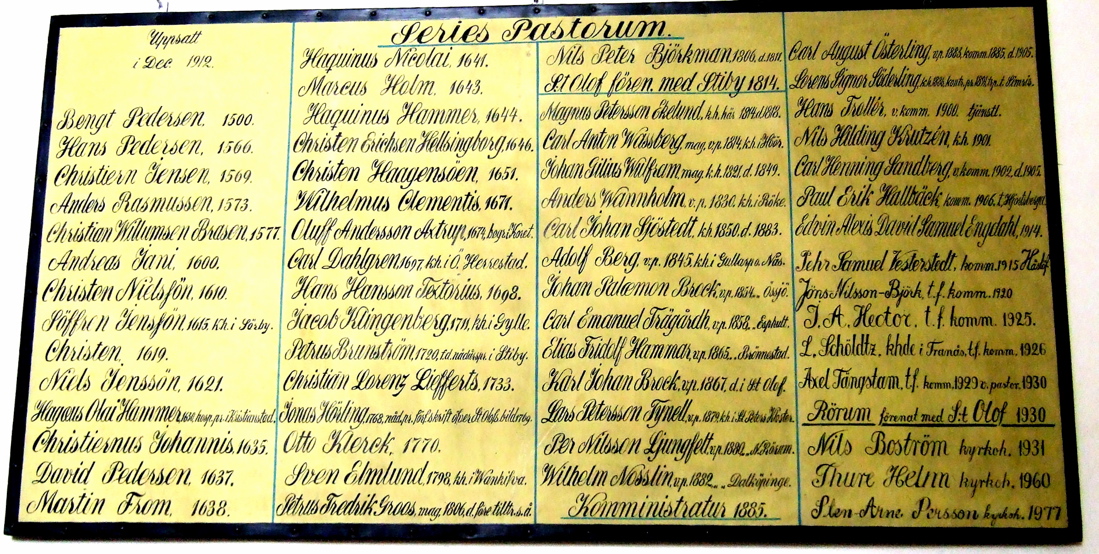 Series Pastorum.
Uppsatt
i Dec. 1912.
Bengt Pedersen 1500.
Hans Pedersen, 1566.
Christiern Jensen, 1569.
Anders Rasmusson, 1573.
Christian Willumsen Brasen, 1577.
Andreas Jani, 1600.
Christen Nielsfön, 1610.
Söffren Jensfön, 1615, k.h. i Sörby.
Christen, 1619.
Niels Jenssön, 1621.
Haqvens Olai Hammer, i Kristianstad.
Christiernus Johannis, 1635.
David Pedersen, 1637.
Martin From, 1638.
Haquinus Nicolai, 1641.
Marcus Holm, 1643.
Haquinus Hammer, 1644.
Christen Erichsen Hellsingborg, 1646.
Christen Haagensöen, 1651.
Wilhelmus Clementis, 1671.
Oluff Andersson Axtrup, 1674,
Carl Dahlgren 1697, k.h. i Ö. Herrestad.
Hans Hansson Textorius, 1698.
Jacob Klingenberg, 1711, k.h. i Grylle.
Petrus Brunström, 1720, i Stiby.
Christian Lorenz Liefferts, 1733.
Jonas Hörling, 1768,
Otto Klerck, 1770.
Sven Elmlund, 1798, k.h. i Wånhifva.
Petrus Fredrik Groos, mag. 1806, d. före tilltr. s.å.
Nils Peter Björkman, 1806, d. 1811.
S:t Olof fören. med Stiby 1814.
Magnus Petersson Ekelund, k.h. här
Carl Anton Wassberg, mag. v.p. 1814, k.h.
Johan Gilius Wulfram, mag. k.h. 1821, d. 1849.
Anders Wannholm, v.p. 1830, k.h. i Röke.
Carl Johan Sjöstedt, k.h. 1850, d. 1883.
Adolf Berg, v.p. 1845, k.h. i Gullarp o. Näs.
Johan Palæmon Brock, v.p. 1854, Össjö.
Carl Emanuel Trägårdh, v.p. 1858, Esphult.
Elias Fridolf Hammar, v.p. 1865, Brönnestad.
Karl Johan Brock, v.p. 1867, d. i S:t Olof.
Lars Petersson Tynell, v.p. 1879,
Per Nilsson Ljungfelt, v.p. 1880, Rörum.
Wilhelm Nosslin, v.p. 1882, Dalköpinge.
Komministratur 1885.
Carl August Österling, v.p. 1883, komm. 1885, d. 1905.
Lorens Sigmer Söderling,
Hans Trollér, v. komm. 1900, tjänstl.
Nils Hilding Krutzén, k.h. 1901.
Carl Henning Sandberg, v. komm. 1902, d. 1905.
Paul Erik Hallbäck, komm. 1906,
Edvin Alexis David Samuel Engdahl, 1914.
Pehr Samuel Vesterstedt, komm. 1915
Jöns Nilsson-Björk, t.f. komm. 1920
J. A. Hector, t.f. komm. 1925.
L. Schöldtz, khde i Tranås, t.f. komm. 1926
Axel Tängstam, t.f. komm. 1929 v. pastor. 1930
Rörum förenat med S:t Olof 1930
Nils Boström kyrkoh. 1931
Thure Helnn kyrkoh. 1960
Sten-Arne Persson kyrkoh. 1977